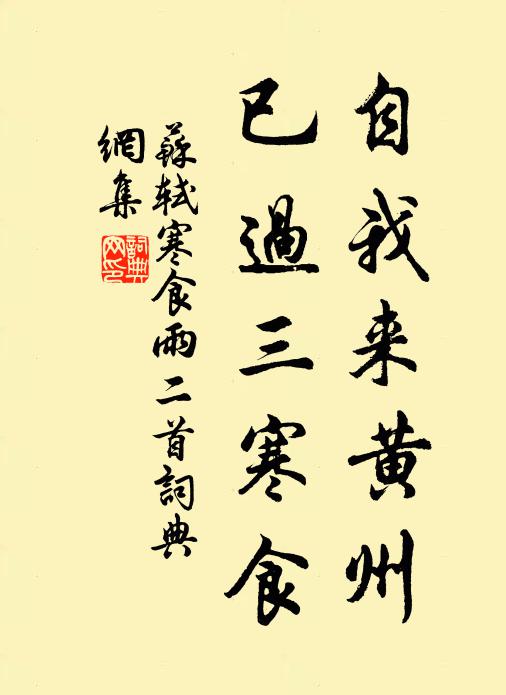 自我来黄州
已過三寒食
蘇軾寒食雨二首詞典
網集
詞典
网印